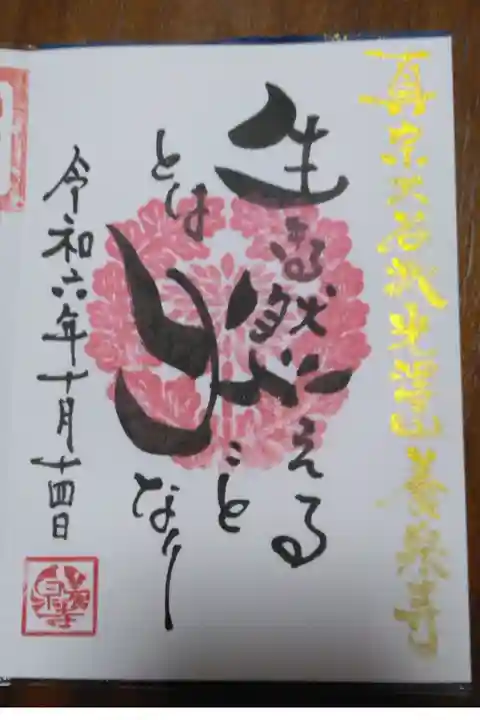 真宗大谷派光山養泉寺
生きる
とは
燃える
ことなり
令和六年十月十四日
養泉寺